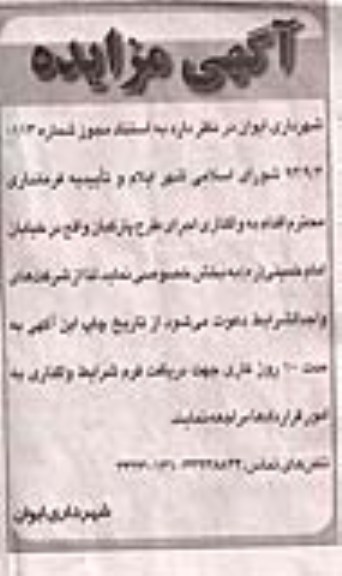 آگهی مزایده
شهرداری ایوان در نظر دارد به استناد مجوز شماره
شورای اسلامی شهر ایلام و تأییدیه فرمانداری
محترم اقدام به واگذاری اجرای طرح پارکبان واقع در خیابان
امام خمینی(ره) به بخش خصوصی نماید لذا از شرکت‌های
واجدالشرایط دعوت می‌شود از تاریخ چاپ این آگهی به
مدت ۱۰ روز کاری جهت دریافت فرم شرایط واگذاری به
امور قراردادها مراجعه نمایند
تلفن‌های تماس:
شهرداری ایوان